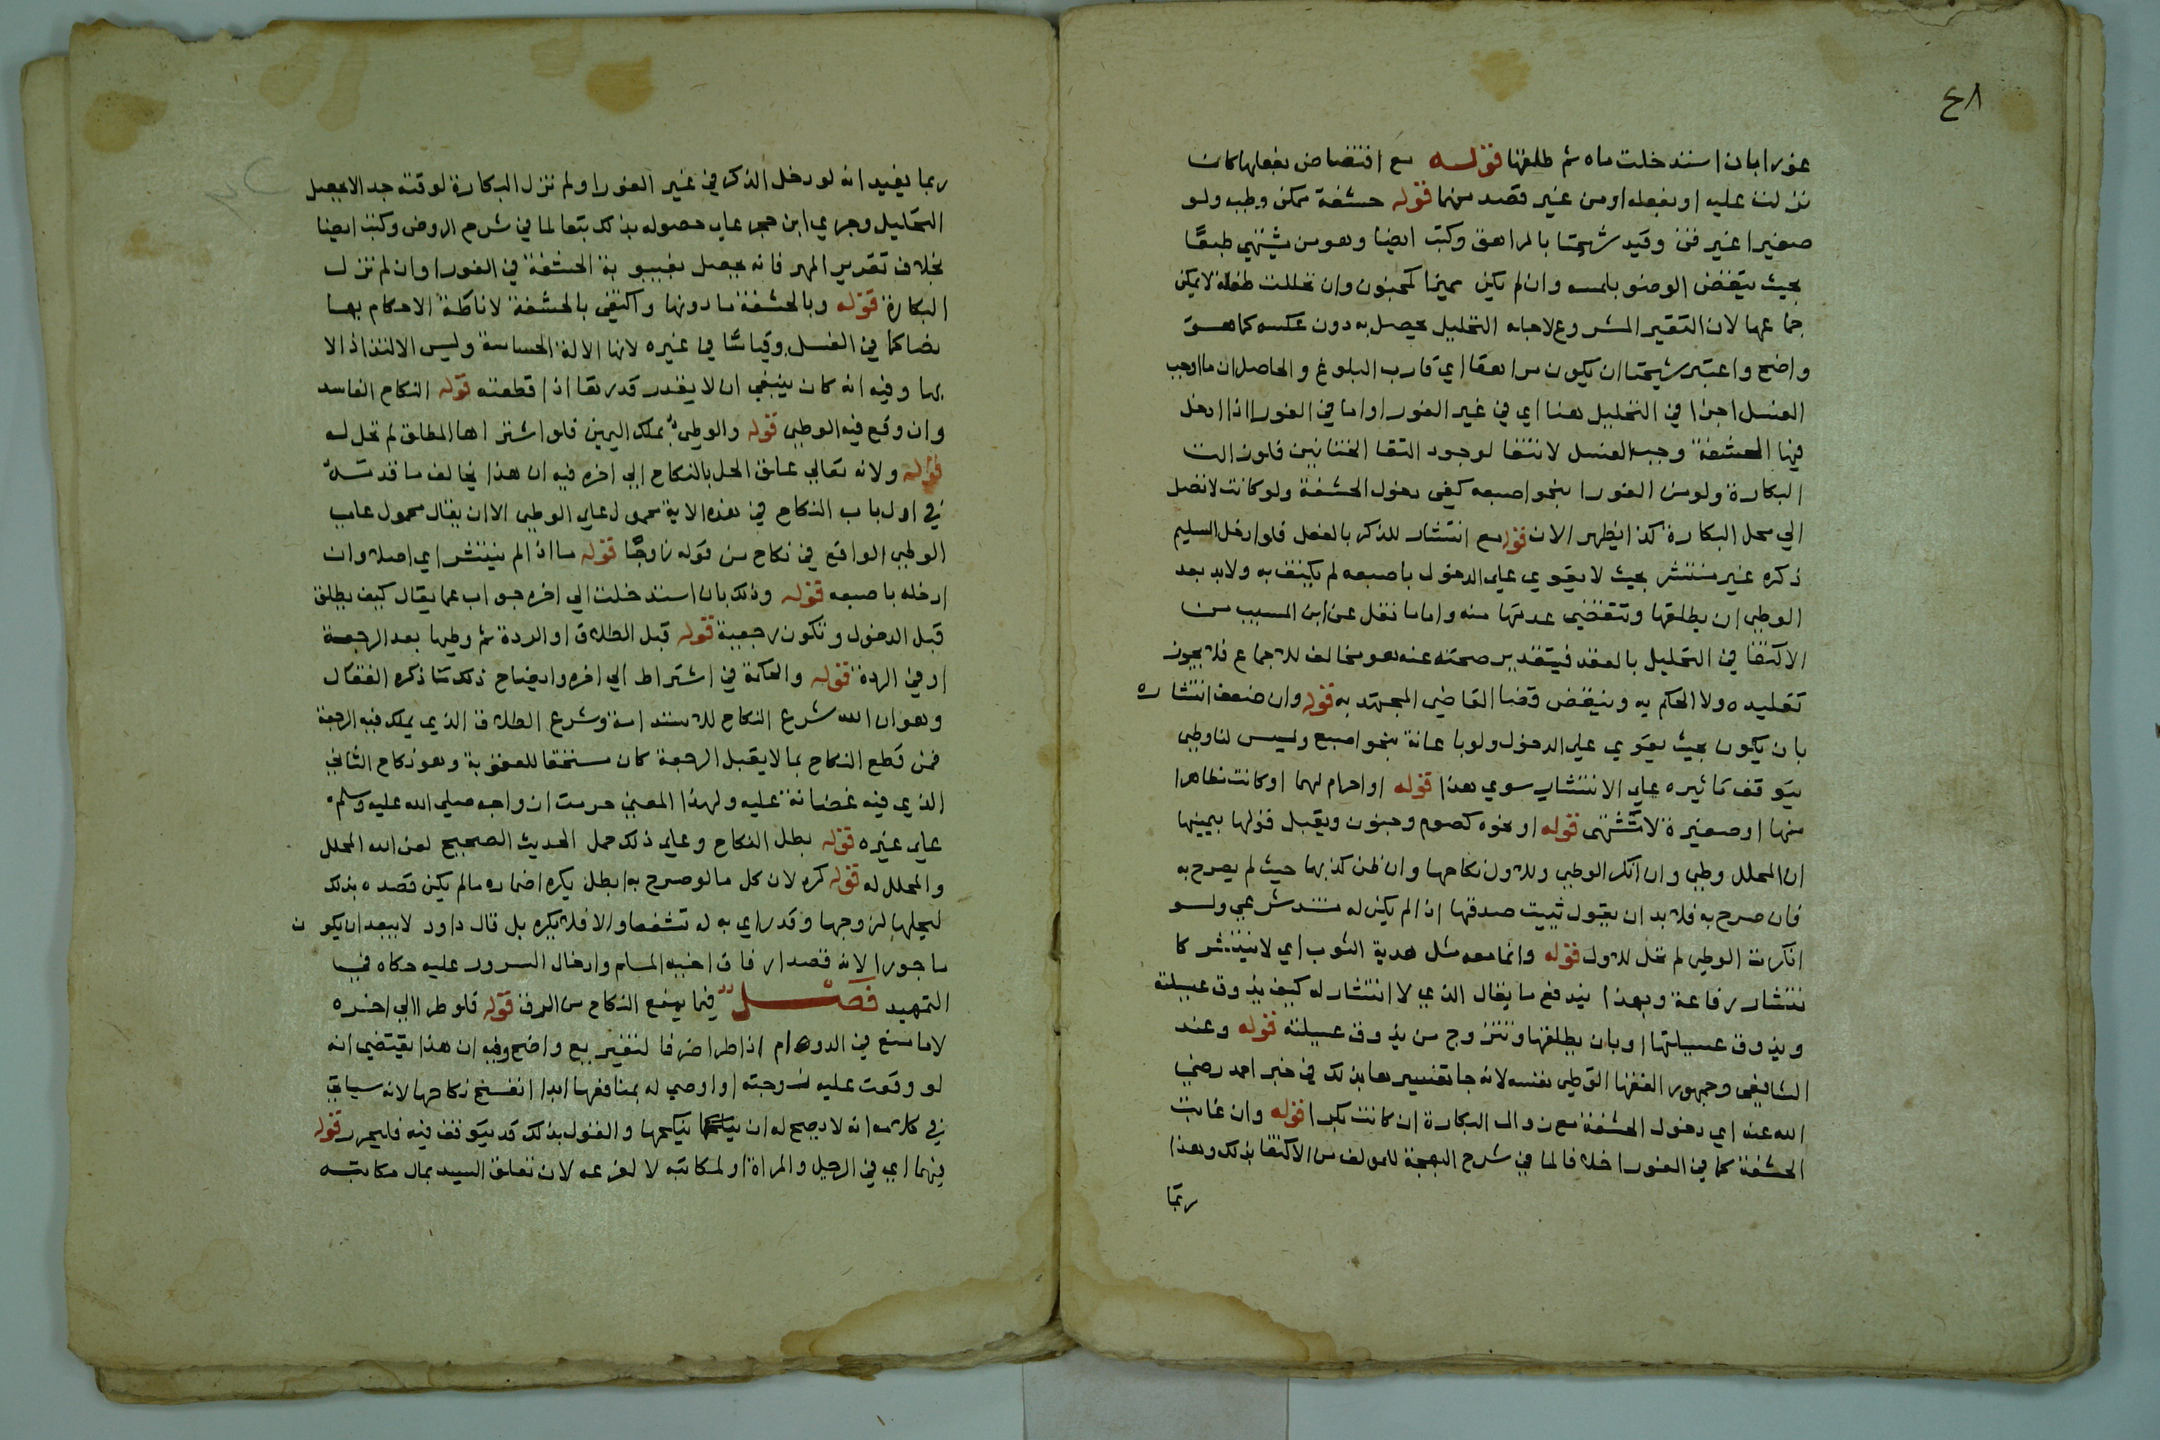 ٤٨
عورا بان استدخلت ماه ثم طلقها قوله مع افتضاض بفعلها كان
نزلت عليه او بفعله او من غير قصد منهما قوله حشفة ممكن وطيه ولو
صغيرا غير قن وقيد شيخنا بالمراهق وكتب ايضا وهو من يشتهي طبعا
بحيث ينتقض الوضو بلمسه وان لم يكن مميزا كمجنون وان تحللت طفلة لا يمكن
جماعها لان التنفير المشروع لاجله التحليل يحصل به دون عكسه كما هو
واضح واعتبر شيخنا ان يكون مراهقا اي قارب البلوغ والحاصل ان ما اوجب
الغسل اجزا في التحليل هنا اي في غير العورا واما في العورا اذا ادخل
فيها الحشفة وجب الغسل لا نتفا لوجود التقا الختانين فلو زالت
البكارة ولو من العورا بنحو اصبعه كفى دخول الحشفة ولو كانت لا تصل
الي محل البكارة كذا يظهر الان قوله مع انتشار للذكر بالفعل فلو ادخل السليم
ذكره غير منتشر بحيث لا يقوي علي الدخول باصبعه لم يكتف به ولا بد بعد
الوطي ان يطلقها وتنقضي عدتها منه واما ما نقل عن ابن المسيب من
الاكتفا في التحليل بالعقد فبتقدير صحته عنه هو مخالف للاجماع فلا يجوز
تقليده ولا الحكم به وينقض قضا القاضي المجتهد به قوله وان ضعف انتشاره
بان يكون بحيث يقوي علي الدخول ولو باعانة بنحو اصبع وليس لنا وطي
يتوقف تاثيره علي الانتشار سوي هذا قوله او احرام لهما او كانت مظاهرا
منها او صغيرة لا تشتهى قوله او نحوه كصوم وجنون ويقبل قولها بيمينها
ان المحلل وطي وان انكر الوطي وللاول نكاحها وان ظن كذبها حيث لم يصرح به
فان صرح به فلا بد ان يقول ثبت صدقها اذا لم يكن له مستند شرعي ولو
انكرت الوطي لم تحل للاول قوله وانما معه مثل هدبة الثوب اي لا ينتشر كا
نتشار رفاعة وبهذا يندفع ما يقال الذي لا انتشار له كيف يذوق عسيلته
ويذوق عسيلتها او بان يطلقها وتتزوج من يذوق عسيلته قوله وعند
الشافعي وجمهور الفقها الوطي نفسه لانه جا تفسيرها بذلك في خبر احمد رضي
الله عنه اي دخول الحشفة مع زوال البكارة ان كانت بكرا قوله وان غابت
الحشفة كما في العورا خلافا لما في شرح البهجة للمولف من الاكتفا بذلك وهذا
ربما
ربما يفيد انه لو دخل الذكر في غير العورا ولم تزل البكارة لرقته جدا لا يحصل
التحليل وجري ابن حجر علي حصوله بذلك تبعا لما في شرح الروض وكتب ايضا
بخلاف تقدير المهر فانه يحصل بغيبوبة الحشفة في العورا وان لم تزل
البكارة قوله وبالحشفة ما دونها واكتفي بالحشفة لاناطة الاحكام بها
نصا كما في الغسل وقياسا في غيره لانها الالة الحساسة وليس الالتذاذ الا
بها وفيه انه كان ينبغي ان لا يقدر قدرها اذا قطعته قوله النكاح الفاسد
وان وقع فيه الوطي قوله والوطي بملك اليمين فلو اشتراها المطلق لم تحل له
قوله ولانه تعالي علق الحل بالنكاح الي اخره فيه ان هذا يخالف ما قدمته
في اول باب النكاح في هذه الاية محمول علي الوطي الا ان يقال محمول علي
الوطي الواقع في نكاح من قوله زوجا قوله ما اذا لم ينتشر اي اصلا وان
ادخله باصبعه قوله وذلك بان استدخلت الي اخره جواب عما يقال كيف يطلق
قبل الدخول وتكون رجعية قوله قبل الطلاق او الردة ثم وطيها بعد الرجعة
او في الردة قوله والحكمة في اشتراط الي اخره وايضاح ذلك ما ذكره القفال
وهو ان الله شرع النكاح للاستدامة وشرع الطلاق الذي يملك فيه الرجعة
فمن قطع النكاح بما لا يقبل الرجعة كان مستحقا للعقوبة وهو نكاح الثاني
الذي فيه غضاضة عليه ولهذا المعني حرمت ازواجه صلي الله عليه وسلم
علي غيره قوله بطل النكاح وعلي ذلك حمل الحديث الصحيح لعن الله المحلل
والمحلل له قوله كره لان كل ما لو صرح به ابطل يكره اضماره ما لم يكن قصده بذلك
ليحلها لزوجها وقد راي به له تشغفا والا فلا يكره بل قال داود لا يبعد ان يكون
ماجورا لانه قصد ارفاق اخيه المسلم وادخال السرور عليه حكاه في
التمهيد فصل فيما يمنع النكاح من الرق قوله فلو طرا الي اخره
لا ما نع في الدوام اذا طرا ضرفا لتغير بيع واضح وفيه ان هذا يقتضي انه
لو وقعت عليه زوجته او اوصي له بمنافعها ابدا انفسخ نكاحها لانه سياتي
في كلامه انه لا يصح له ان ينكحها والقول بذلك قد يتوقف فيه فليحرر قوله
فيهما اي في الرجل والمراة او لمكاتبه لا لفرعه لان تعلق السيد بمال مكاتبه